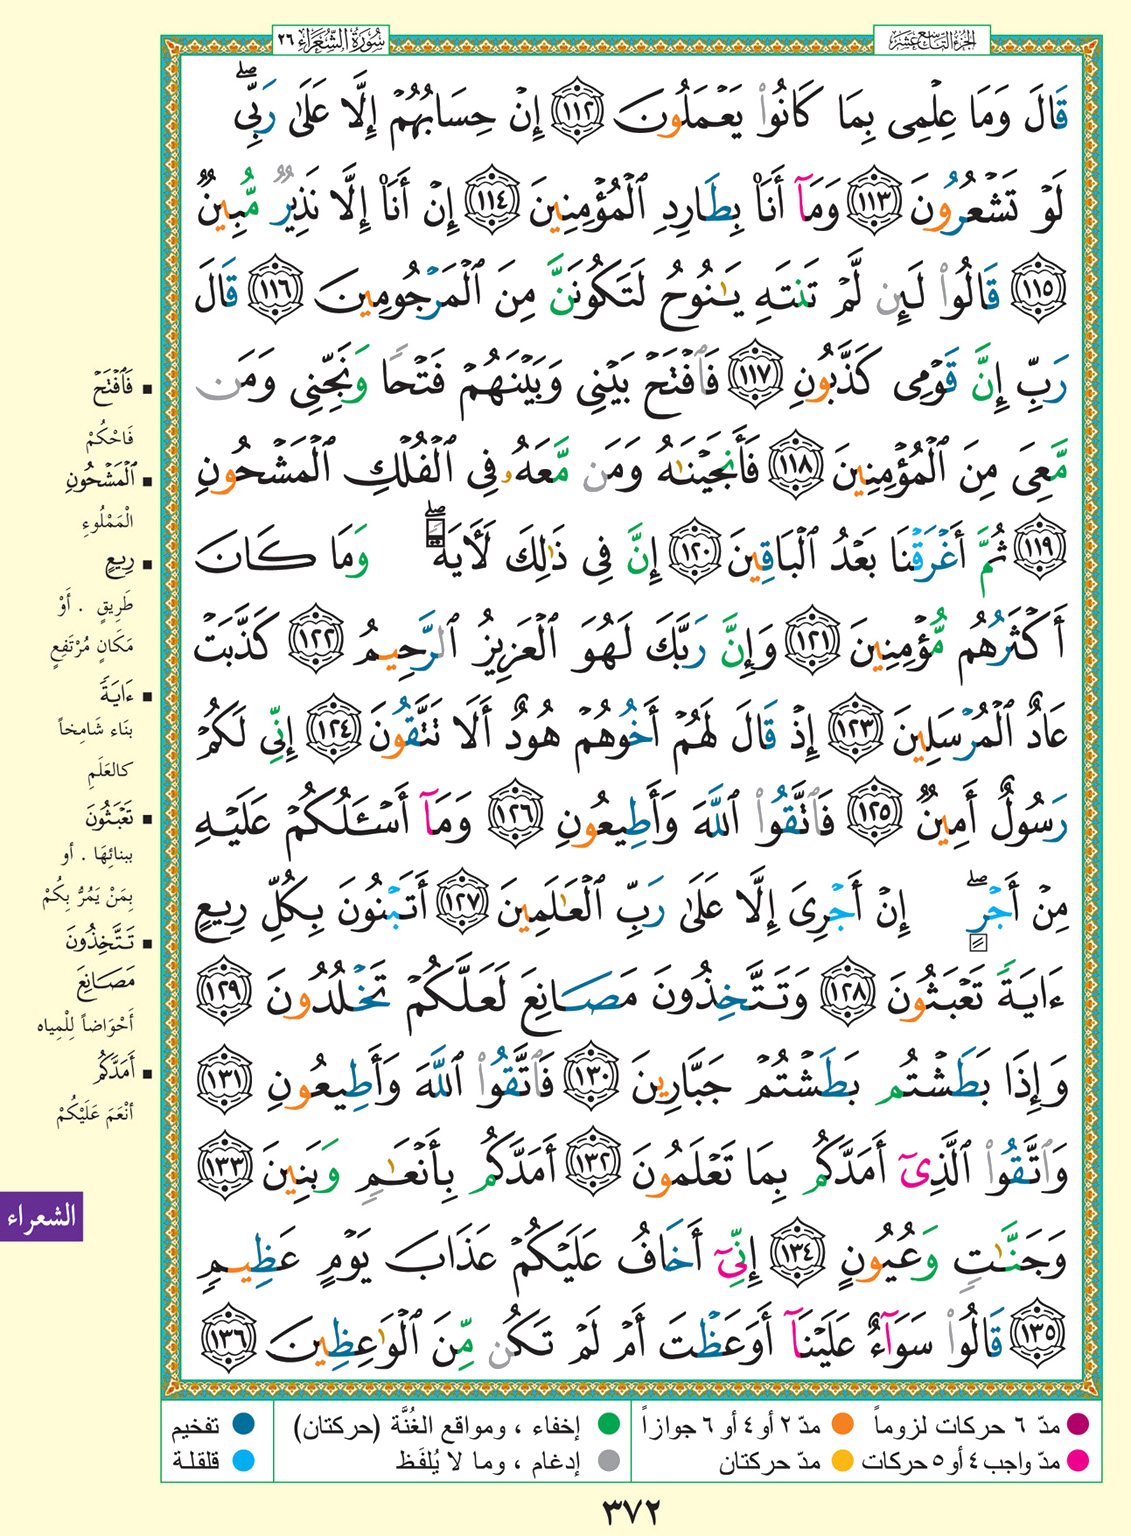 الجزء التاسع عشر
سورة الشعراء ٢٦
قَالَ وَمَا عِلْمِى بِمَا كَانُوا۟ يَعْمَلُونَ ١١٢ إِنْ حِسَابُهُمْ إِلَّا عَلَىٰ رَبِّى ۖ
لَوْ تَشْعُرُونَ ١١٣ وَمَآ أَنَا۠ بِطَارِدِ ٱلْمُؤْمِنِينَ ١١٤ إِنْ أَنَا۠ إِلَّا نَذِيرٌ مُّبِينٌ
١١٥ قَالُوا۟ لَئِن لَّمْ تَنتَهِ يَـٰنُوحُ لَتَكُونَنَّ مِنَ ٱلْمَرْجُومِينَ ١١٦ قَالَ
رَبِّ إِنَّ قَوْمِى كَذَّبُونِ ١١٧ فَٱفْتَحْ بَيْنِى وَبَيْنَهُمْ فَتْحًا وَنَجِّنِى وَمَن
مَّعِىَ مِنَ ٱلْمُؤْمِنِينَ ١١٨ فَأَنجَيْنَـٰهُ وَمَن مَّعَهُۥ فِى ٱلْفُلْكِ ٱلْمَشْحُونِ
١١٩ ثُمَّ أَغْرَقْنَا بَعْدُ ٱلْبَاقِينَ ١٢٠ إِنَّ فِى ذَٰلِكَ لَـَٔايَةً ۖ وَمَا كَانَ
أَكْثَرُهُم مُّؤْمِنِينَ ١٢١ وَإِنَّ رَبَّكَ لَهُوَ ٱلْعَزِيزُ ٱلرَّحِيمُ ١٢٢ كَذَّبَتْ
عَادٌ ٱلْمُرْسَلِينَ ١٢٣ إِذْ قَالَ لَهُمْ أَخُوهُمْ هُودٌ أَلَا تَتَّقُونَ ١٢٤ إِنِّى لَكُمْ
رَسُولٌ أَمِينٌ ١٢٥ فَٱتَّقُوا۟ ٱللَّهَ وَأَطِيعُونِ ١٢٦ وَمَآ أَسْـَٔلُكُمْ عَلَيْهِ
مِنْ أَجْرٍ ۖ إِنْ أَجْرِىَ إِلَّا عَلَىٰ رَبِّ ٱلْعَـٰلَمِينَ ١٢٧ أَتَبْنُونَ بِكُلِّ رِيعٍ
ءَايَةً تَعْبَثُونَ ١٢٨ وَتَتَّخِذُونَ مَصَانِعَ لَعَلَّكُمْ تَخْلُدُونَ ١٢٩
وَإِذَا بَطَشْتُم بَطَشْتُمْ جَبَّارِينَ ١٣٠ فَٱتَّقُوا۟ ٱللَّهَ وَأَطِيعُونِ ١٣١
وَٱتَّقُوا۟ ٱلَّذِىٓ أَمَدَّكُم بِمَا تَعْلَمُونَ ١٣٢ أَمَدَّكُم بِأَنْعَـٰمٍ وَبَنِينَ ١٣٣
وَجَنَّـٰتٍ وَعُيُونٍ ١٣٤ إِنِّىٓ أَخَافُ عَلَيْكُمْ عَذَابَ يَوْمٍ عَظِيمٍ
١٣٥ قَالُوا۟ سَوَآءٌ عَلَيْنَآ أَوَعَظْتَ أَمْ لَمْ تَكُن مِّنَ ٱلْوَٰعِظِينَ ١٣٦
■ فَٱفْتَحْ
فَاحْكُمْ
■ ٱلْمَشْحُونِ
الْمَمْلُوءِ
■ رِيعٍ
طَرِيقٍ . أَوْ
مَكَانٍ مُرْتَفِعٍ
■ ءَايَةً
بنَاء شَامِخاً
كالعَلَمِ
■ تَعْبَثُونَ
ببنائِهَا . أو
بِمَنْ يَمُرُّ بِكُمْ
■ تَتَّخِذُونَ
مَصَانِعَ
أَحْوَاضاً لِلْمِياه
■ أَمَدَّكُم
أنْعَمَ عَلَيْكُمْ
الشعراء
مدّ ٦ حركات لزوماً مدّ ٢ أو ٤ أو ٦ جوازاً إخفاء ، ومواقع الغُنَّة (حركتان) تفخيم
مدّ واجب ٤ أو ٥ حركات مدّ حركتان إدغام ، وما لا يُلفَظ قلقلة
٣٧٢